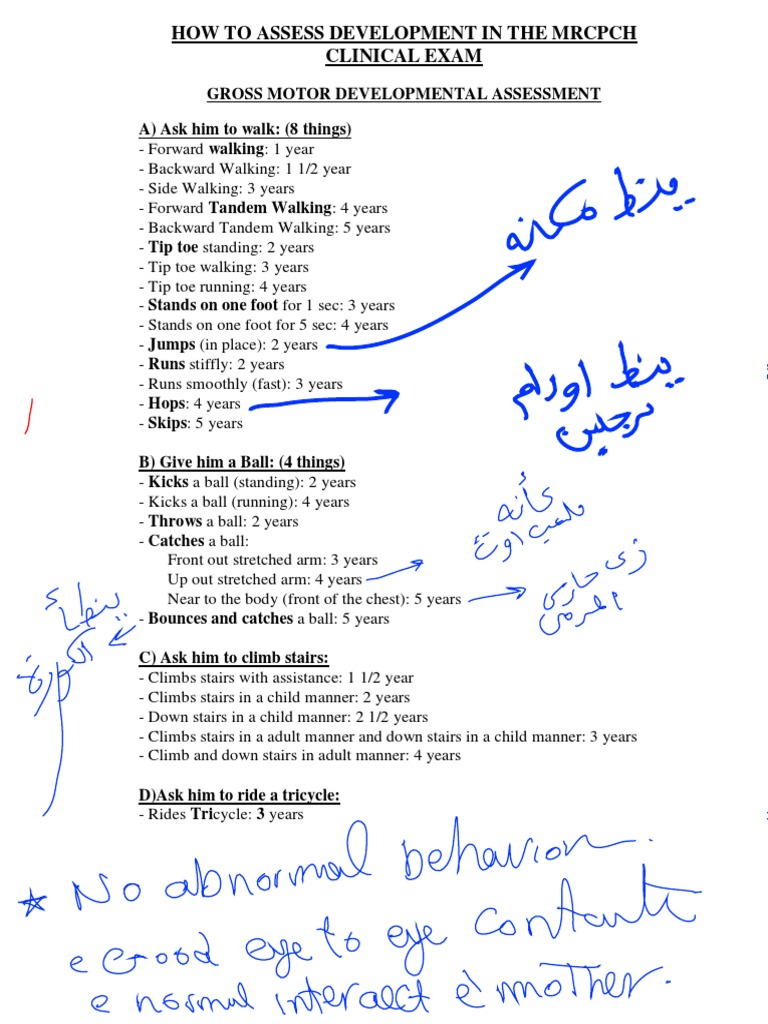 HOW TO ASSESS DEVELOPMENT IN THE MRCPCH
CLINICAL EXAM
GROSS MOTOR DEVELOPMENTAL ASSESSMENT
A) Ask him to walk: (8 things)
- Forward walking: 1 year
- Backward Walking: 1 1/2 year
- Side Walking: 3 years
- Forward Tandem Walking: 4 years
- Backward Tandem Walking: 5 years
- Tip toe standing: 2 years
- Tip toe walking: 3 years
- Tip toe running: 4 years
- Stands on one foot for 1 sec: 3 years
- Stands on one foot for 5 sec: 4 years
- Jumps (in place): 2 years
ينط مكانه
- Runs stiffly: 2 years
- Runs smoothly (fast): 3 years
- Hops: 4 years
ينط
- Skips: 5 years
B) Give him a Ball: (4 things)
- Kicks a ball (standing): 2 years
- Kicks a ball (running): 4 years
- Throws a ball: 2 years
- Catches a ball:
Front out stretched arm: 3 years
Up out stretched arm: 4 years
كأنه
Near to the body (front of the chest): 5 years
زى حارس
- Bounces and catches a ball: 5 years
الكورة
C) Ask him to climb stairs:
- Climbs stairs with assistance: 1 1/2 year
- Climbs stairs in a child manner: 2 years
- Down stairs in a child manner: 2 1/2 years
- Climbs stairs in a adult manner and down stairs in a child manner: 3 years
- Climb and down stairs in adult manner: 4 years
D)Ask him to ride a tricycle:
- Rides Tricycle: 3 years
No abnormal behavior.
Good eye to eye contact
normal interact mother.